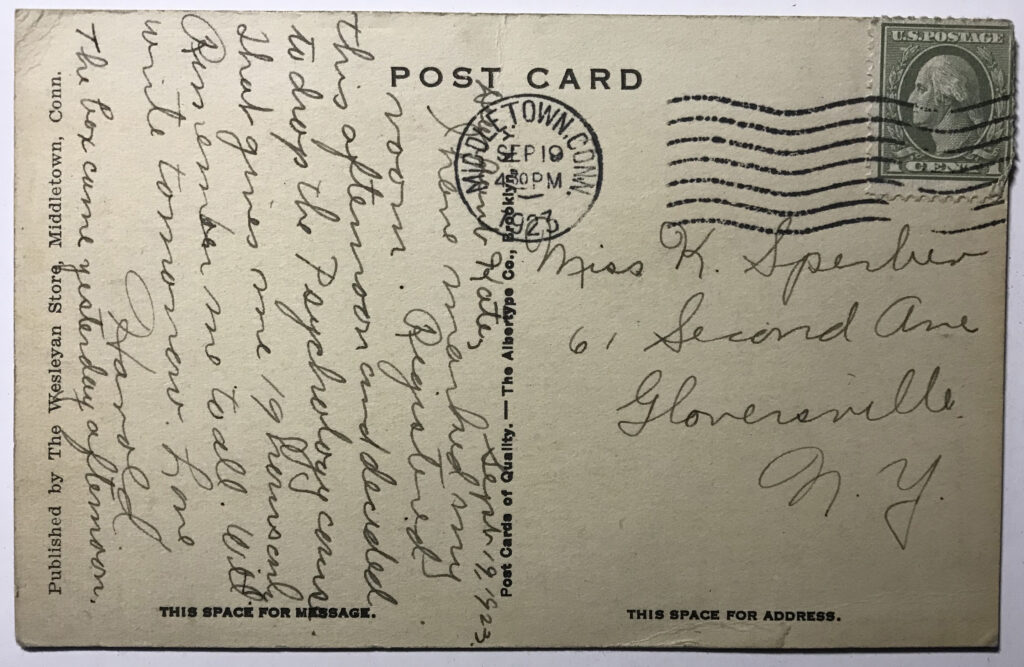 POST CARD
U.S. POSTAGE
CENT
MIDDLETOWN, CONN.
SEP 19
4 30 PM
1923
Miss K. Sperber
61 Second Ave
Gloversville
N. Y.
THIS SPACE FOR ADDRESS.
Post Cards of Quality. — The Albertype Co., Brooklyn
Sept. 19, 1923.
Kate,
I have my
room. Registered
this afternoon and decided
to drop the Psychology course.
That gives me 19 hours only.
Remember me to all. Will
write tomorrow. Love
Harold
The box came yesterday afternoon.
THIS SPACE FOR MESSAGE.
Published by The Wesleyan Store, Middletown, Conn.